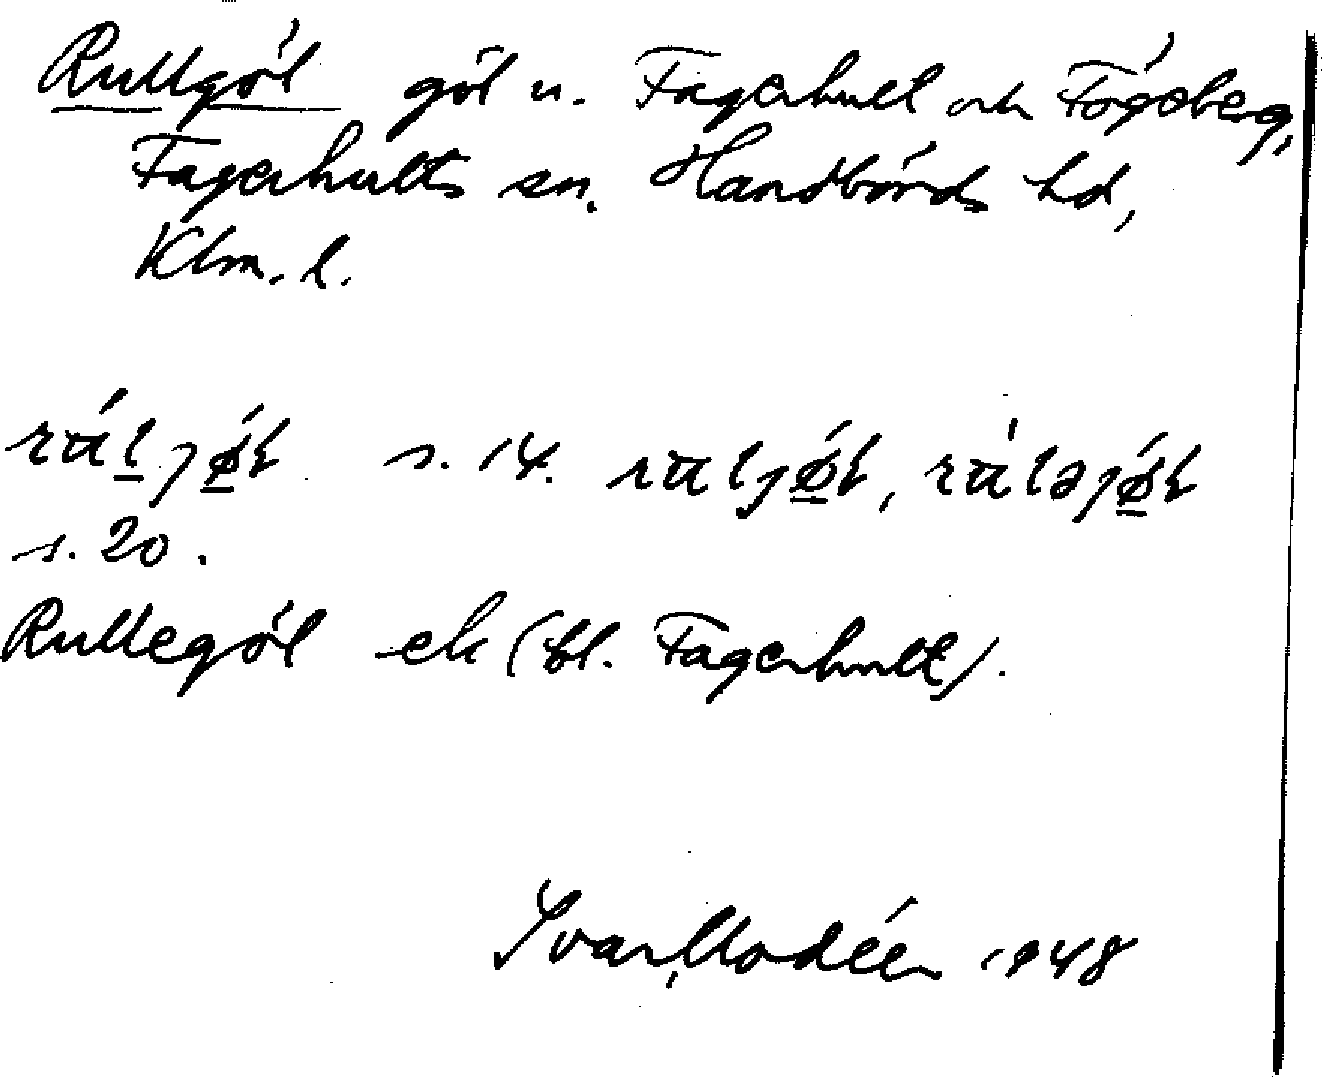 Rullgöl göl n. Fagerhult och Fögeberg,
Fagerhults sn. Handbörds hd,
Klm. l.
s. 14.
s. 20.
Rullegöl ek (bl. Fagerhult).
Ivar Modéer 1948